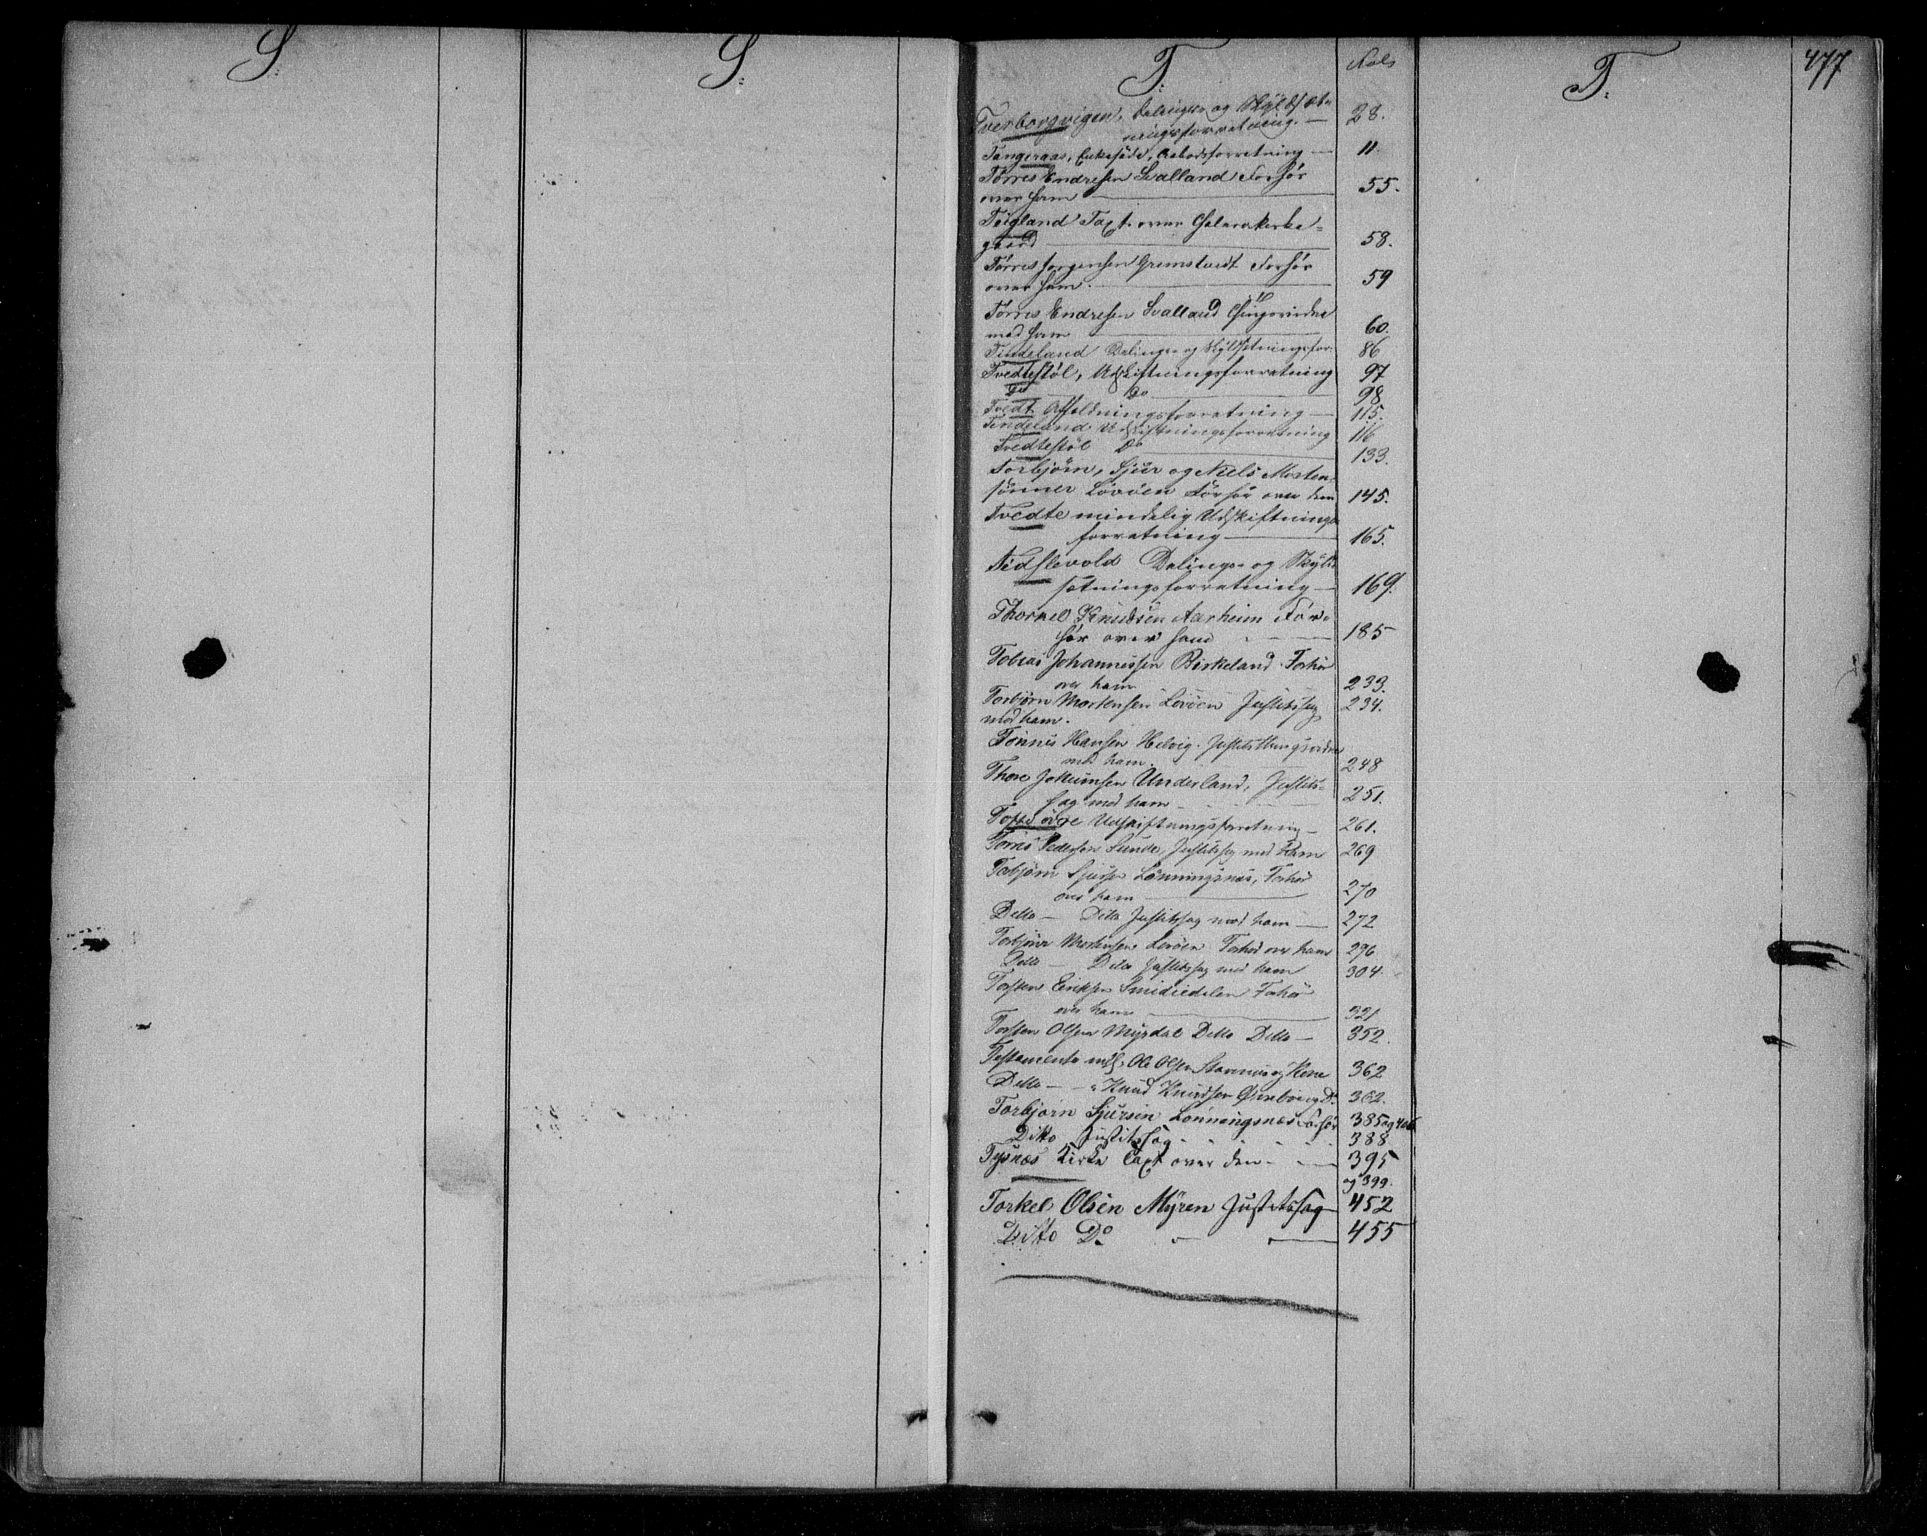 S:
S:
T:
Fols
T:
477
Tverborgvigen, Delings- og Skyldsæt-
ningsforretning. — 28.
Tangeraas, Enkesæde, Aabodsforretning — 11.
Tørres Endresen Svalland Forhør
over ham — 55.
Teigland Taxt over Cholerakirke-
gaard — 58.
Tørres Jorgensen Gremstvedt Forhør
over ham. — 59
Torres Endresen Svalland Thingsvidne
med ham — 60.
Tindeland Delings- og Skyldsætningsfor: 86
Tvedtestøl, Udskiftningsforretning 97
Do Do — 98
Tvedt Affældningsforretning — 115.
Tindeland Udskiftningsforretning 116
Tvedtestøl Do — 133.
Torbjørn, Sjur og Niels Morten-
sønner Lovöen Forhør over dem 145.
Tvedte mindelig Udskiftnings-
forretning — 165.
Tidslevold Delings- og Skyld-
sætningsforretning — 169.
Thorkel Knudsen Aarheim For-
hør over ham — 185
Tobias Johannessen Birkeland. Forhør
over ham 233.
Torbjørn Mortensen Lovöen Justitssag
med ham. 234.
Tönnis Hansen Helvig. Justitsthingsvidne
med ham. 248
Thore Johannsen Underland, Justits-
sag med ham — 251.
Tofte övre Udskiftningsforretning — 261.
Torris Pedersen Lunde, Justitssag med Ham 269
Torbjörn Sjursen Lönningsnæs, Forhør
over ham — 270
Ditto — Ditto Justitssag med ham — 272
Torbjörn Mortensen Lovöen Forhør over ham 296
Ditto — Ditto Justitssag med ham 304.
Torsten Eriksen Smidiedalen Forhør
over ham — 321
Torsten Olsen Myrdal Ditto Ditto — 352.
Testamente mell. Ole Olsen Stavnæs og Kone 362
Ditto — " Knud Knudsen og Do 362.
Torbjörn Sjursen Lönningsnæs Forhør 385 og 406
Ditto Justitssag — 388
Tysnæs Kirke Taxt over den — 395
og 399.
Torkel Olsen Myren Justitssag 452
Ditto Do — 455